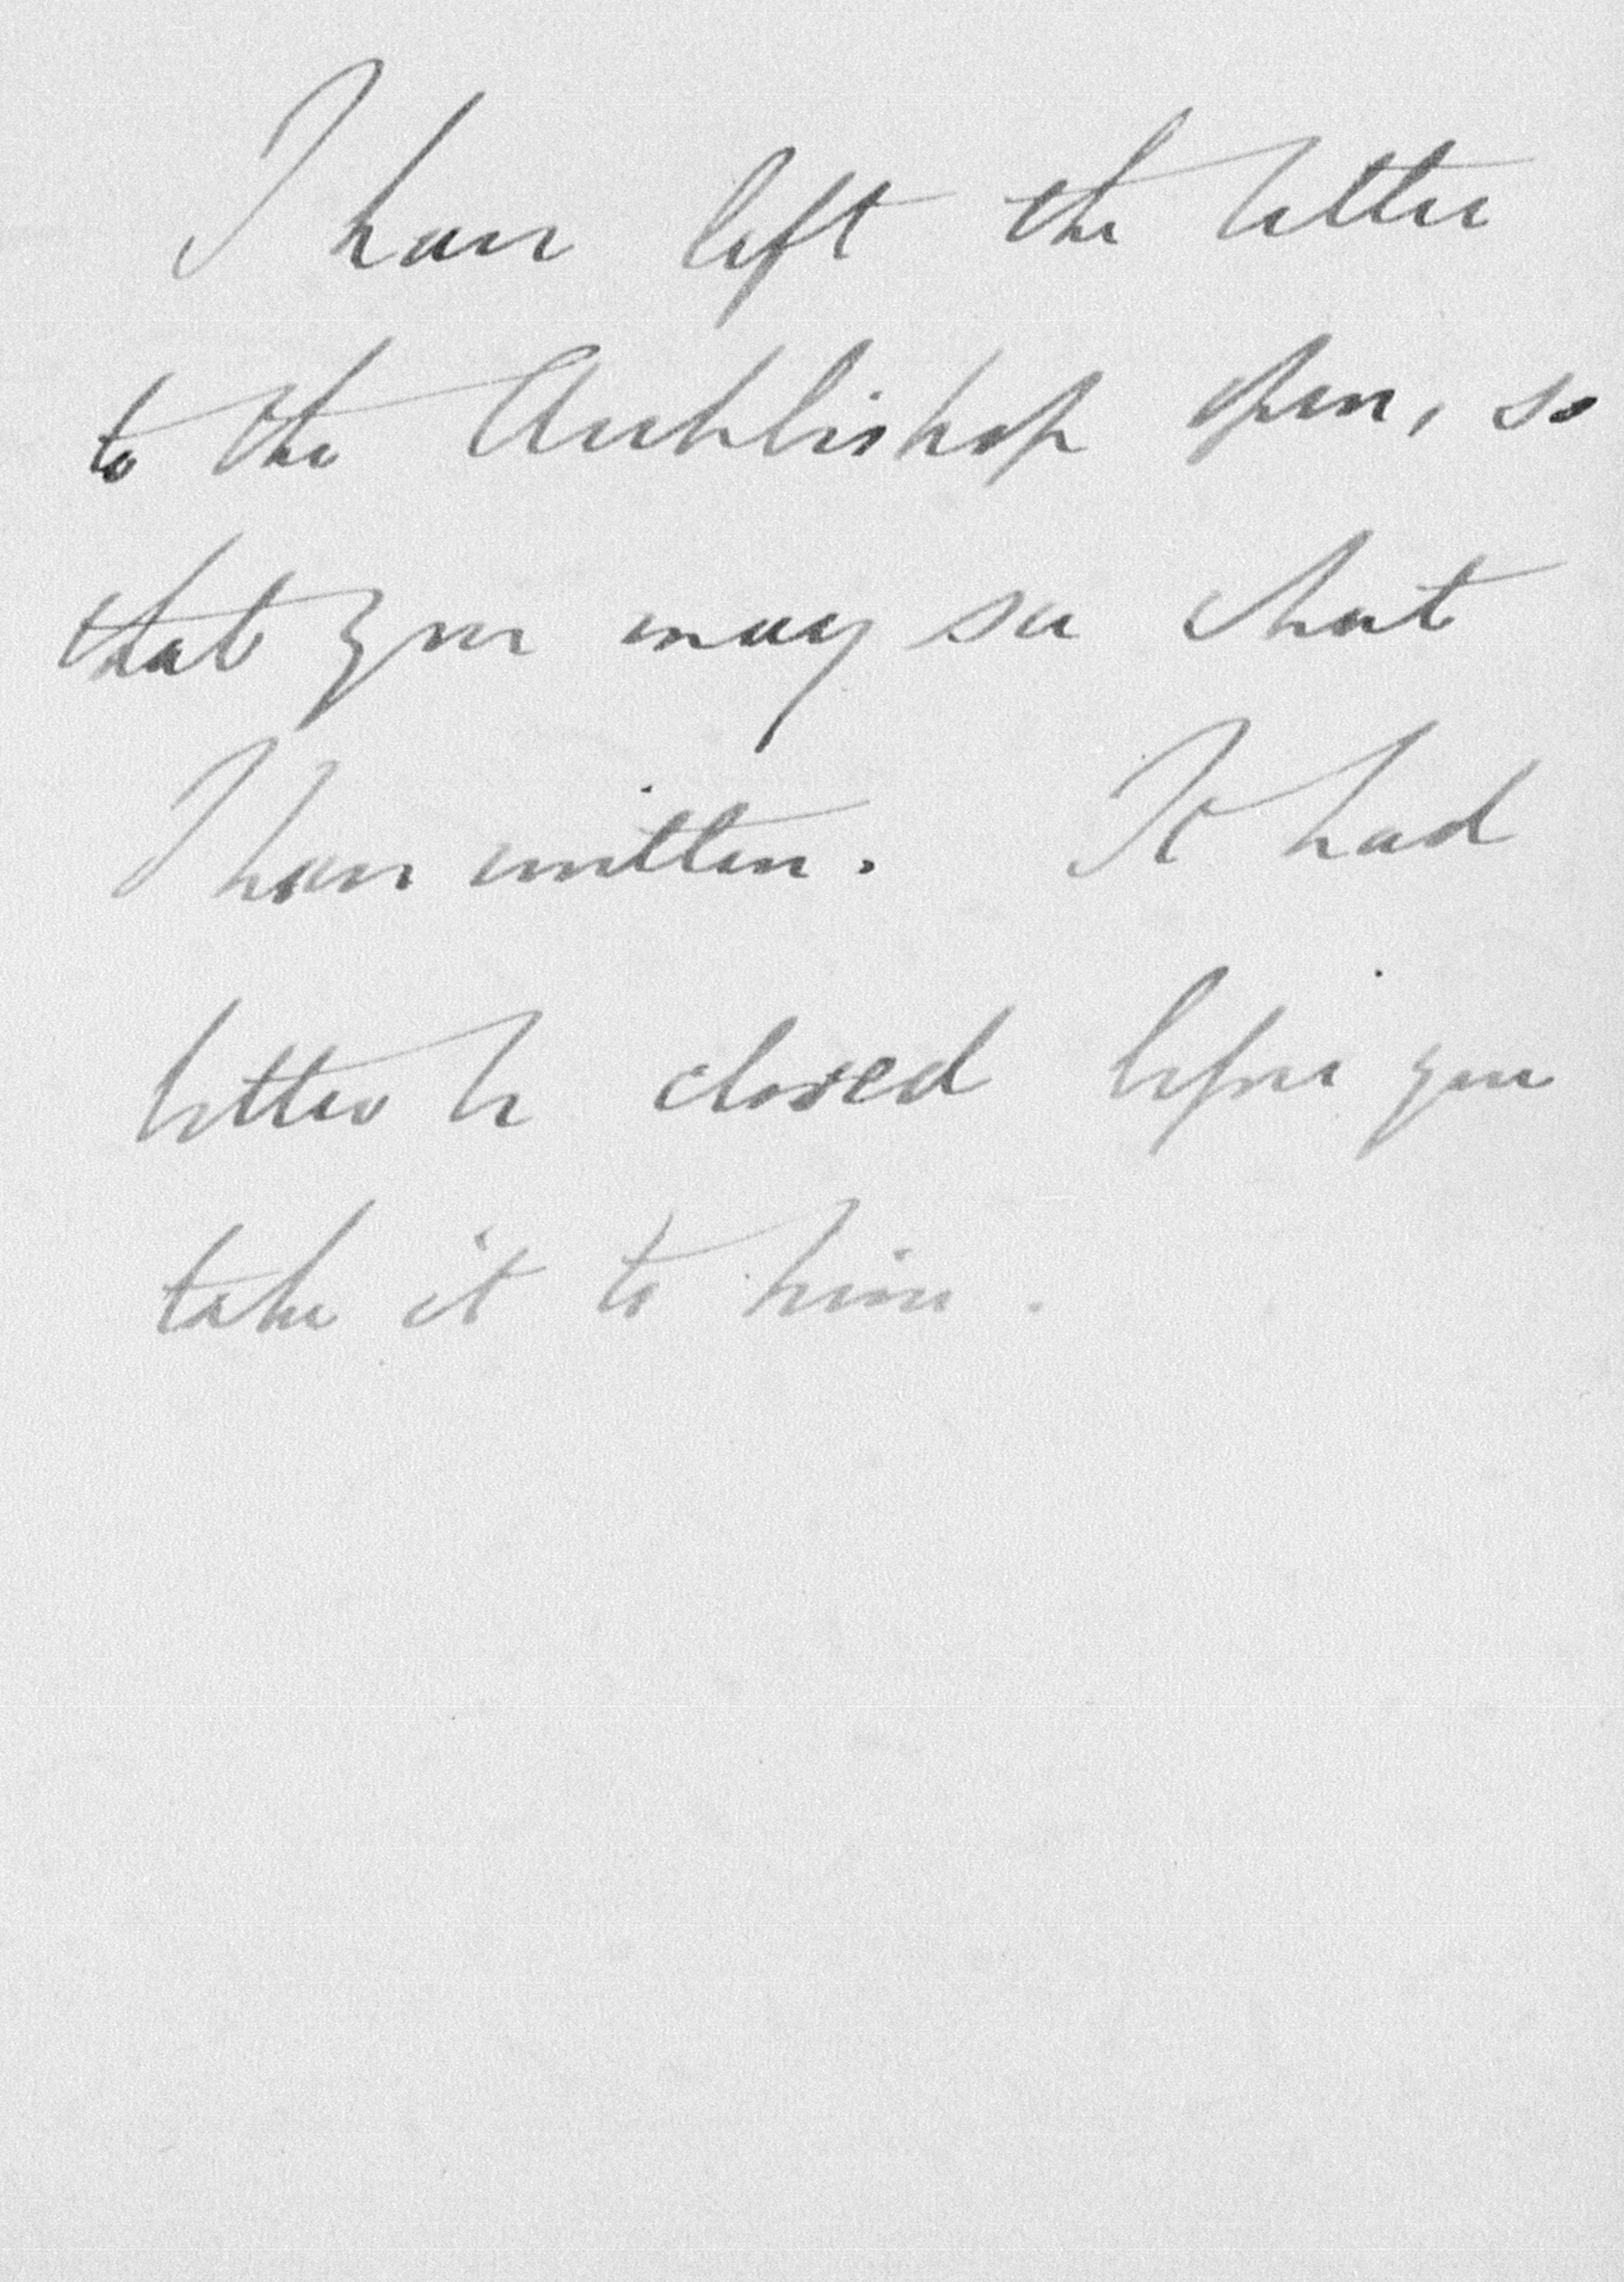 I have left the letter
to the Archbishop open, so
that you may see what
I have written. It had
better be closed before you
take it to him.